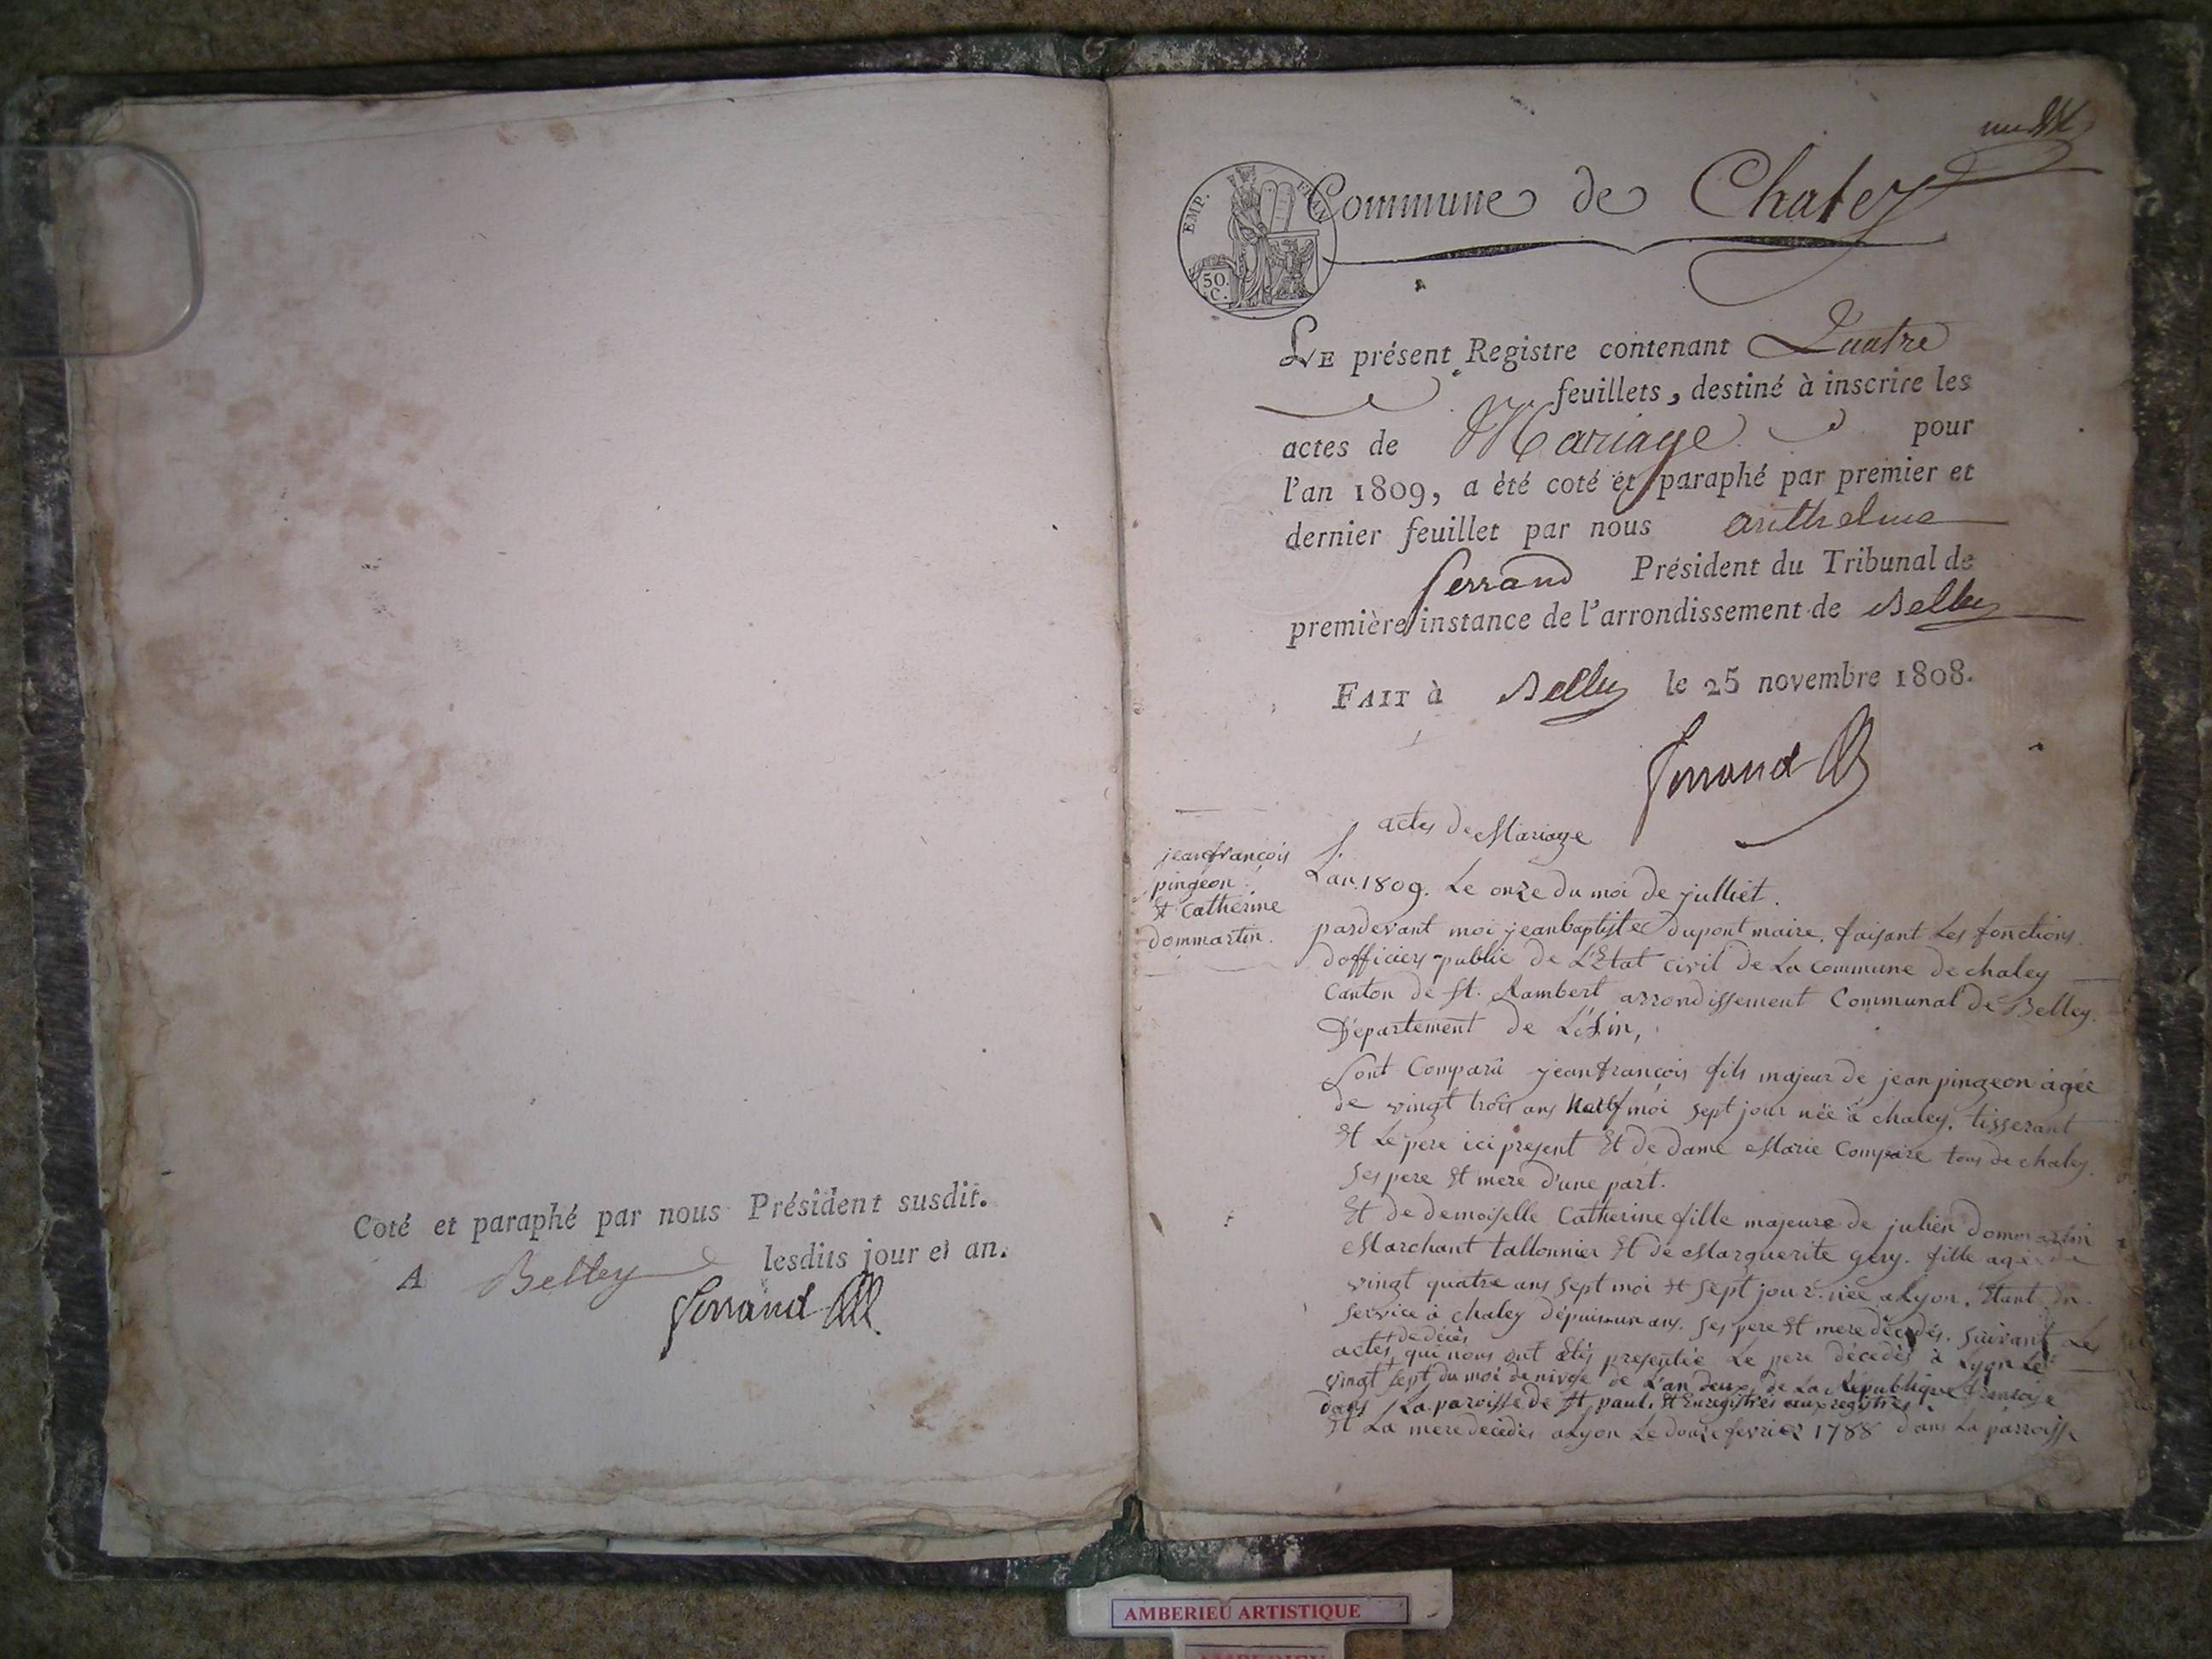 Coté et paraphé par nous Président susdit.
A Belley lesdits jour et an.
ferrand
EMP. FRAN
50.
C.
Commune de Chaley
LE présent Registre contenant Quatre
feuillets, destiné à inscrire les
actes de Mariage pour
l'an 1809, a été coté et paraphé par premier et
dernier feuillet par nous anthelme
ferrand Président du Tribunal de
première instance de l'arrondissement de Belley
FAIT à Belley le 25 novembre 1808.
ferrand
actes de Mariage
jean françois
pingeon
Et Catherine
dommartin.
L'an 1809. Le onze du moi de julliet.
pardevant moi jean baptiste dupont maire, faisant Les fonctions
dofficiers public de L'Etat civil de La commune de chaley
Canton de St. Rambert arrondissement Communal de Belley.
Département de L'ain,
Sont Comparu jean françois fils majeur de jean pingeon agée
de vingt trois ans moi sept jour née à chaley, tisserant
Et Le pere ici present Et de dame Marie Compaire tous de chaley.
Ses pere Et mere d'une part.
Et de demoiselle Catherine fille majeure de julien dommartin
Marchant tallonnier Et de Marguerite gery. fille agée de
vingt quatre ans sept moi Et sept jour. née a Lyon, Etant en
service à chaley dépuis un ans. ses pere Et mere décedés. suivant Les
actes de décès qui nous ont Etés presentée Le pere décedés à Lyon Le
vingt sept du moi de nivose de L'an deux de La République françoise
dans La paroisse de St paul. Et Enregistrés aux registres
Et La mere decedés a Lyon Le douze fevrier 1788 dans La parroisse
AMBERIEU ARTISTIQUE
AMBERIEU